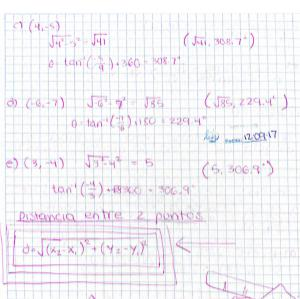 c) (4,-5)
√4²-5² = √41 (√41, 308.7°)
θ = tan⁻¹(-5/4) + 360 = 308.7°
d) (-6,-7) √-6²-7² = √85 (√85, 229.4°)
θ = tan⁻¹(-7/-6) + 180 = 229.4°
12·09·17
e) (3,-4) √3²-4² = 5 (5, 306.9°)
tan⁻¹(-4/3) + 360 = 306.9°
Distancia entre 2 puntos
d = √(x₂-x₁)² + (y₂-y₁)²